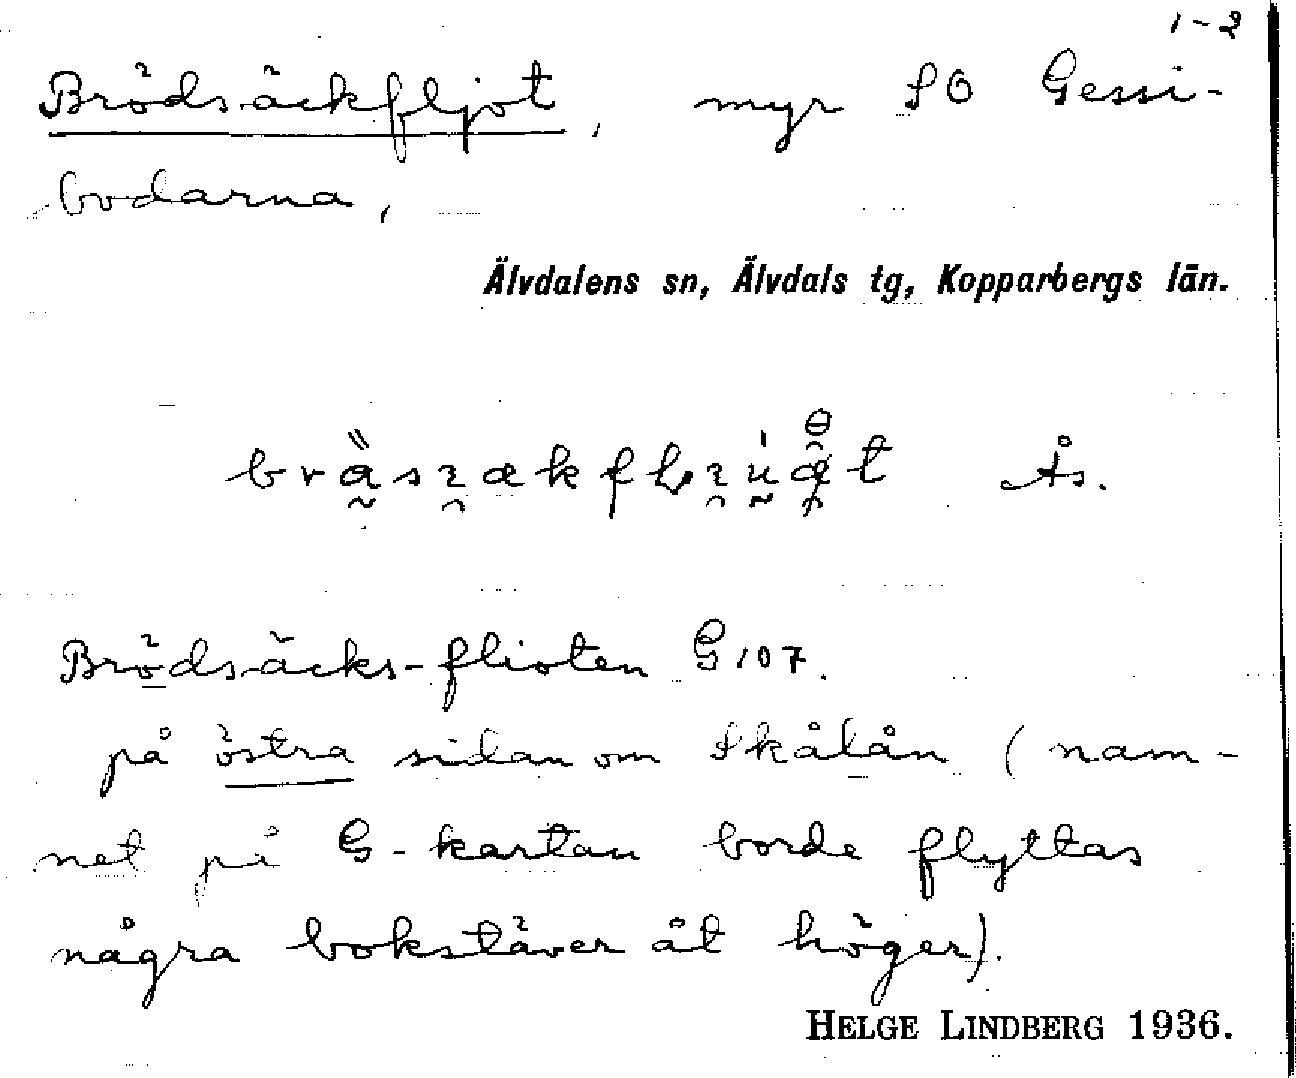 1-2
Brödsäckfljot, myr SO Gessi-
bodarna,
Älvdalens sn, Älvdals tg, Kopparbergs län.
Ås.
Brödsäcks-flioten G 107.
på östra sidan om Skålån (nam-
net på G-kartan borde flyttas
några bokstäver åt höger).
HELGE LINDBERG 1936.